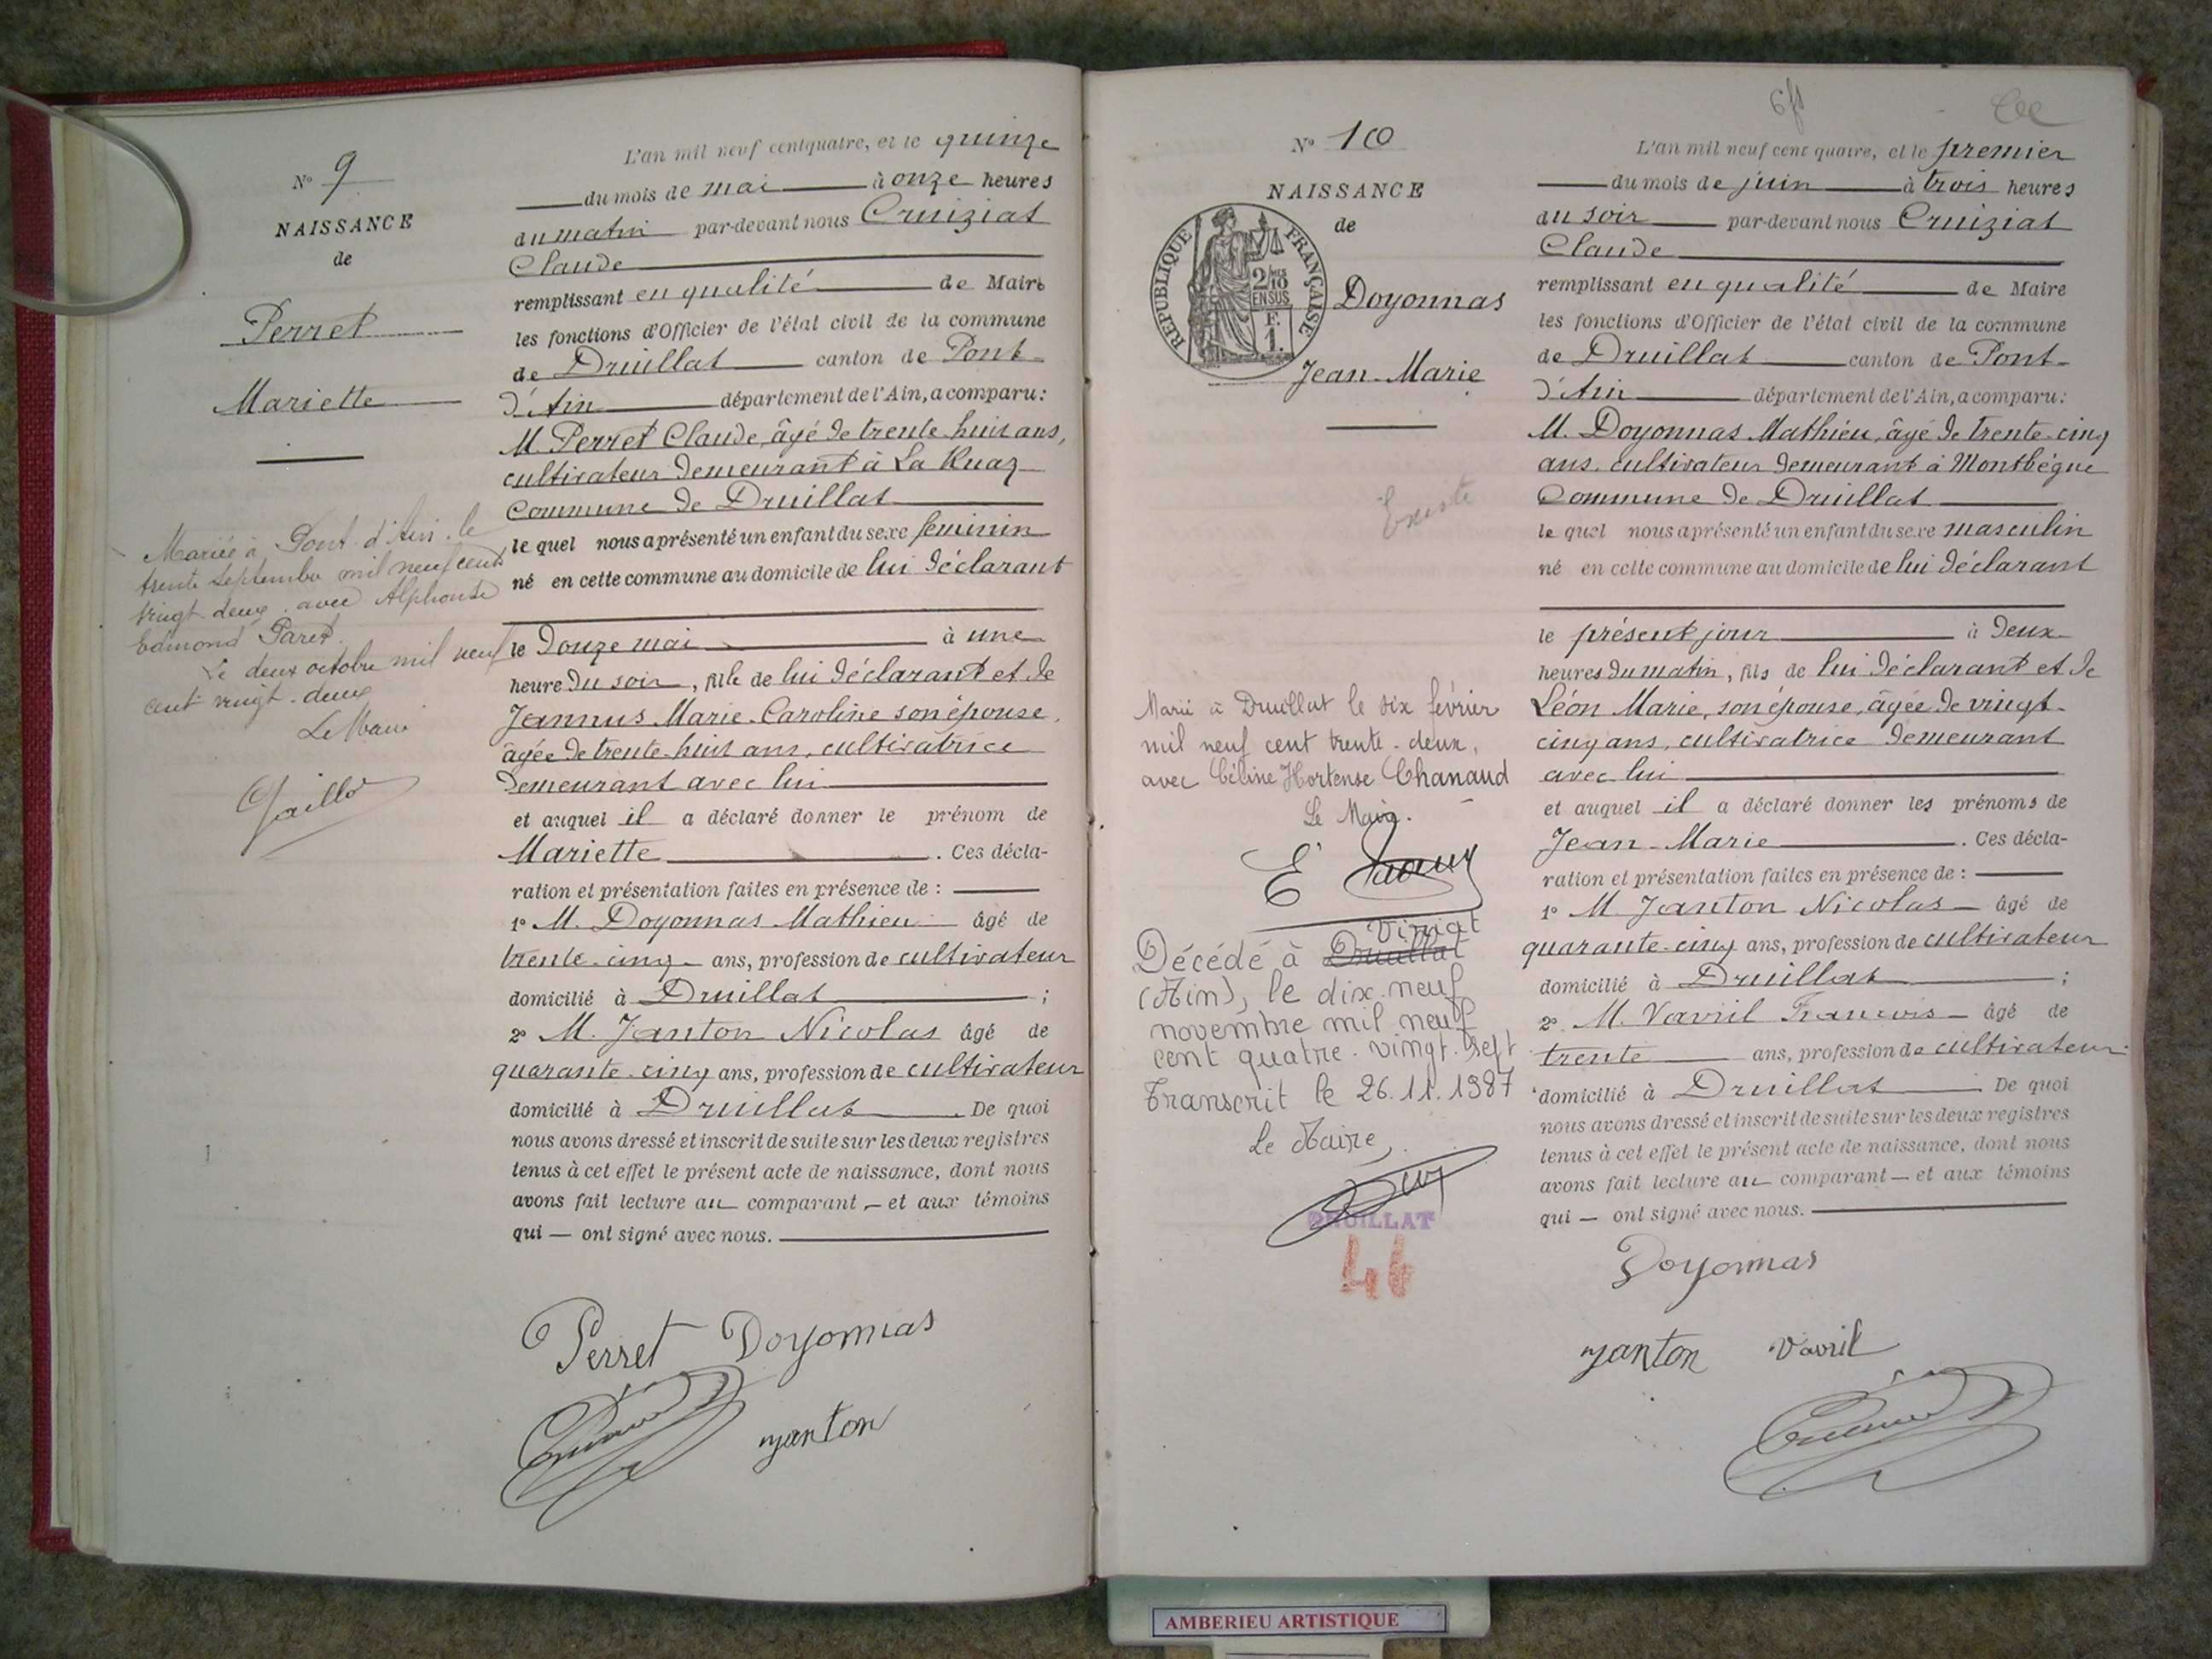 N° 9
NAISSANCE
de
Perret
Mariette
Mariée à Pont-d'Ain, le
trente Septembre mil neuf cent
vingt-deux, avec Alphonse
Edmond Paret.
Le deux octobre mil neuf
cent vingt-deux
Le Maire
L'an mil neuf cent quatre, et le quinze
du mois de mai à onze heures
du matin par-devant nous Cruiziat
Claude
remplissant en qualité de Maire
les fonctions d'Officier de l'état civil de la commune
de Druillat canton de Pont-
d'Ain département de l'Ain, a comparu:
M. Perret Claude, âgé de trente-huit ans,
cultivateur demeurant à La Ruaz
Commune de Druillat
le quel nous a présenté un enfant du sexe féminin
né en cette commune au domicile de lui déclarant
le douze mai à une
heure du soir, fille de lui déclarant et de
Jannus Marie-Caroline son épouse,
âgée de trente-huit ans, cultivatrice
demeurant avec lui
et auquel il a déclaré donner le prénom de
Mariette. Ces décla-
ration et présentation faites en présence de :
1° M. Doyonnas Mathieu âgé de
trente-cinq ans, profession de cultivateur
domicilié à Druillat ;
2° M. Janton Nicolas âgé de
quarante-cinq ans, profession de cultivateur
domicilié à Druillat. De quoi
nous avons dressé et inscrit de suite sur les deux registres
tenus à cet effet le présent acte de naissance, dont nous
avons fait lecture au comparant — et aux témoins
qui — ont signé avec nous.
Perret Doyonnas
Janton
N° 10
NAISSANCE
de
REPUBLIQUE FRANÇAISE
2/10
EN SUS
F.
1.
Doyonnas
Jean-Marie
Existe
Marié à Druillat le six février
mil neuf cent trente-deux,
avec Céline Hortense Chanaud
Le Maire.
Viriat
Décédé à Druillat
(Ain), le dix-neuf
novembre mil neuf
cent quatre-vingt-sept
Transcrit le 26.11.1987
Le Maire,
DRUILLAT
L'an mil neuf cent quatre, et le premier
du mois de juin à trois heures
du soir par-devant nous Cruiziat
Claude
remplissant en qualité de Maire
les fonctions d'Officier de l'état civil de la commune
de Druillat canton de Pont-
d'Ain département de l'Ain, a comparu:
M. Doyonnas Mathieu, âgé de trente-cinq
ans, cultivateur demeurant à Montbègue
Commune de Druillat
le quel nous a présenté un enfant du sexe masculin
né en cette commune au domicile de lui déclarant
le présent jour à deux
heures du matin, fils de lui déclarant et de
Léon Marie, son épouse, âgée de vingt-
cinq ans, cultivatrice demeurant
avec lui
et auquel il a déclaré donner les prénoms de
Jean-Marie. Ces décla-
ration et présentation faites en présence de :
1° M. Janton Nicolas âgé de
quarante-cinq ans, profession de cultivateur
domicilié à Druillat ;
2° M. Vavril François âgé de
trente ans, profession de cultivateur
domicilié à Druillat. De quoi
nous avons dressé et inscrit de suite sur les deux registres
tenus à cet effet le présent acte de naissance, dont nous
avons fait lecture au comparant — et aux témoins
qui — ont signé avec nous.
Doyonnas
Janton Vavril
AMBERIEU ARTISTIQUE